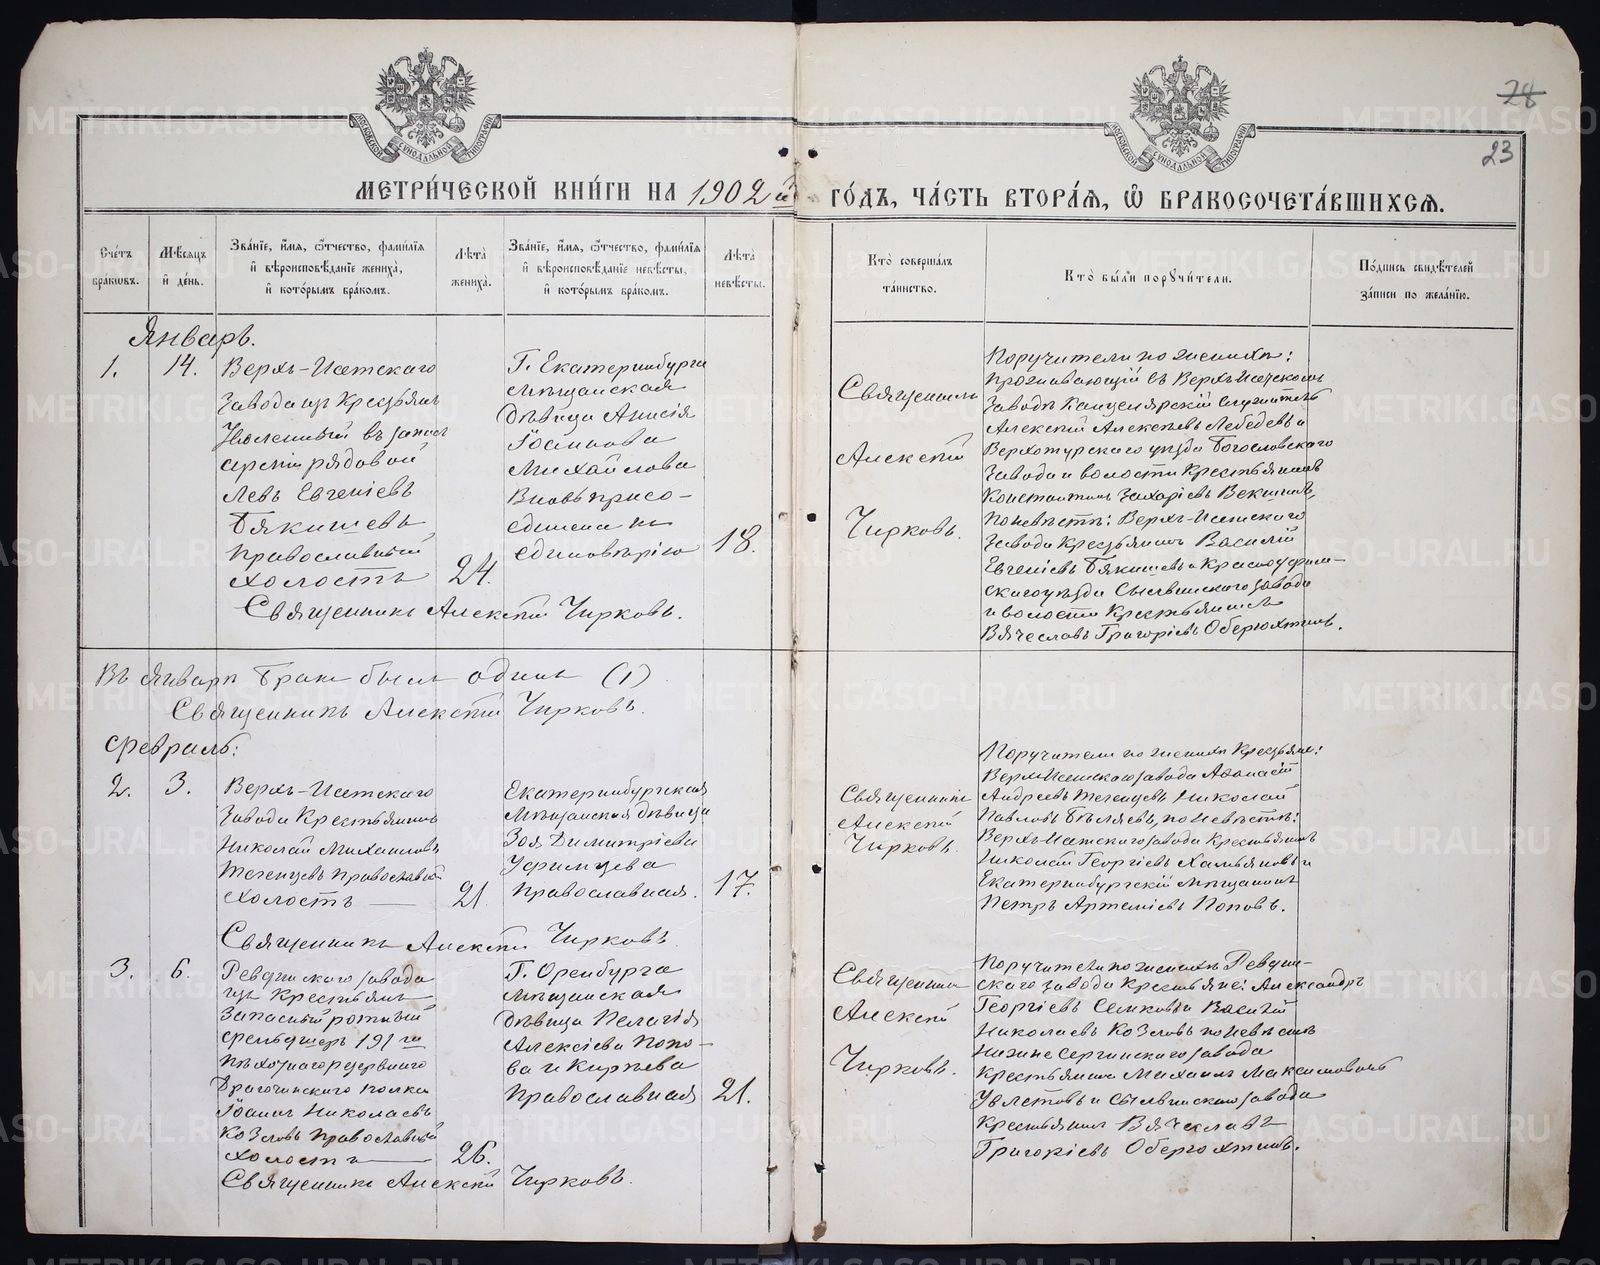 28
23
МЕТРИЧЕСКОЙ КНИГИ НА 1902й ГОДЪ, ЧАСТЬ ВТОРАЯ, Ѿ БРАКОСОЧЕТАВШИХСЯ.
МОСКОВСКОЙ СѴНОДАЛЬНОЙ ТИПОГРАФІИ
МОСКОВСКОЙ СѴНОДАЛЬНОЙ ТИПОГРАФІИ
Счетъ браковъ.
Мѣсяцъ и день.
Званіе, имя, отчество, фамилія и вѣроисповѣданіе жениха, и которымъ бракомъ.
Лѣта жениха.
Званіе, имя, отчество, фамилія и вѣроисповѣданіе невѣсты, и которымъ бракомъ.
Лѣта невѣсты.
Кто совершалъ таинство.
Кто были поручители.
Подпись свидѣтелей записи по желанію.
Январь.
1.
14.
Верхъ-Исетскаго
Завода изъ Крестьянъ
арміи рядовой
Левъ Евгеніевъ
Бякишевъ
православный
холостъ
24.
Г. Екатеринбурга
мѣщанская
дѣвица Анисія
Іоаннова
Михайлова
Вновь присо-
единена къ
единовѣрію
18.
Священникъ
Алексій
Чирковъ.
Поручители по женихѣ:
проживающій въ Верхъ-Исетскомъ
Заводѣ Канцелярскій служитель
Алексій Алексѣевъ Лебедевъ и
Верхотурскаго уѣзда Богословскаго
завода и волости Крестьянинъ
Константинъ Захаріевъ Векшинъ,
по невѣстѣ: Верхъ-Исетскаго
завода Крестьянинъ Василій
Евгеніевъ Бякишевъ и Красноуфим-
скаго уѣзда Сылвинскаго завода
и волости Крестьянинъ
Вячеславъ Григоріевъ Оберюхтинъ.
Священникъ Алексій Чирковъ.
Въ Январѣ бракъ былъ одинъ (1)
Священникъ Алексій Чирковъ.
Февраль:
2.
3.
Верхъ-Исетскаго
Завода Крестьянинъ
Николай Михаиловъ
Тегенцевъ православный
холостъ
21
Екатеринбургская
мѣщанская дѣвица
Зоя Димитріева
Уфимцева
православная.
17.
Священникъ
Алексій
Чирковъ.
Поручители по женихѣ Крестьяне:
Верхъ-Исетскаго завода Аѳанасій
Андреевъ Тегенцевъ Николай
Павловъ Бѣляевъ, по невѣстѣ:
Верхъ-Исетскаго завода Крестьянинъ
Николай Георгіевъ Хальяновъ и
Екатеринбургскій мѣщанинъ
Петръ Артеміевъ Поповъ.
Священникъ Алексій Чирковъ
3.
6.
Ревдинскаго завода
изъ Крестьянъ
Запасный ротный
фельдшеръ 191го
пѣхотнаго резервнаго
Драгочинскаго полка
Іоаннъ Николаевъ
Козловъ православный
холостъ
26.
Г. Оренбурга
мѣщанская
дѣвица Пелагія
Алексіева Попо-
ва и Кирѣева
православная
21.
Священникъ
Алексій
Чирковъ.
Поручители по женихѣ Ревдин-
скаго завода Крестьяне: Александръ
Георгіевъ Семковъ и Василій
Николаевъ Козловъ по невѣстѣ
Нижне Сергинскаго завода
Крестьянинъ Михаилъ Максимовичъ
и Сылвинскаго завода
Крестьянинъ Вячеславъ
Григоріевъ Оберюхтинъ.
Священникъ Алексій Чирковъ.
METRIKI.GASO-URAL.RU